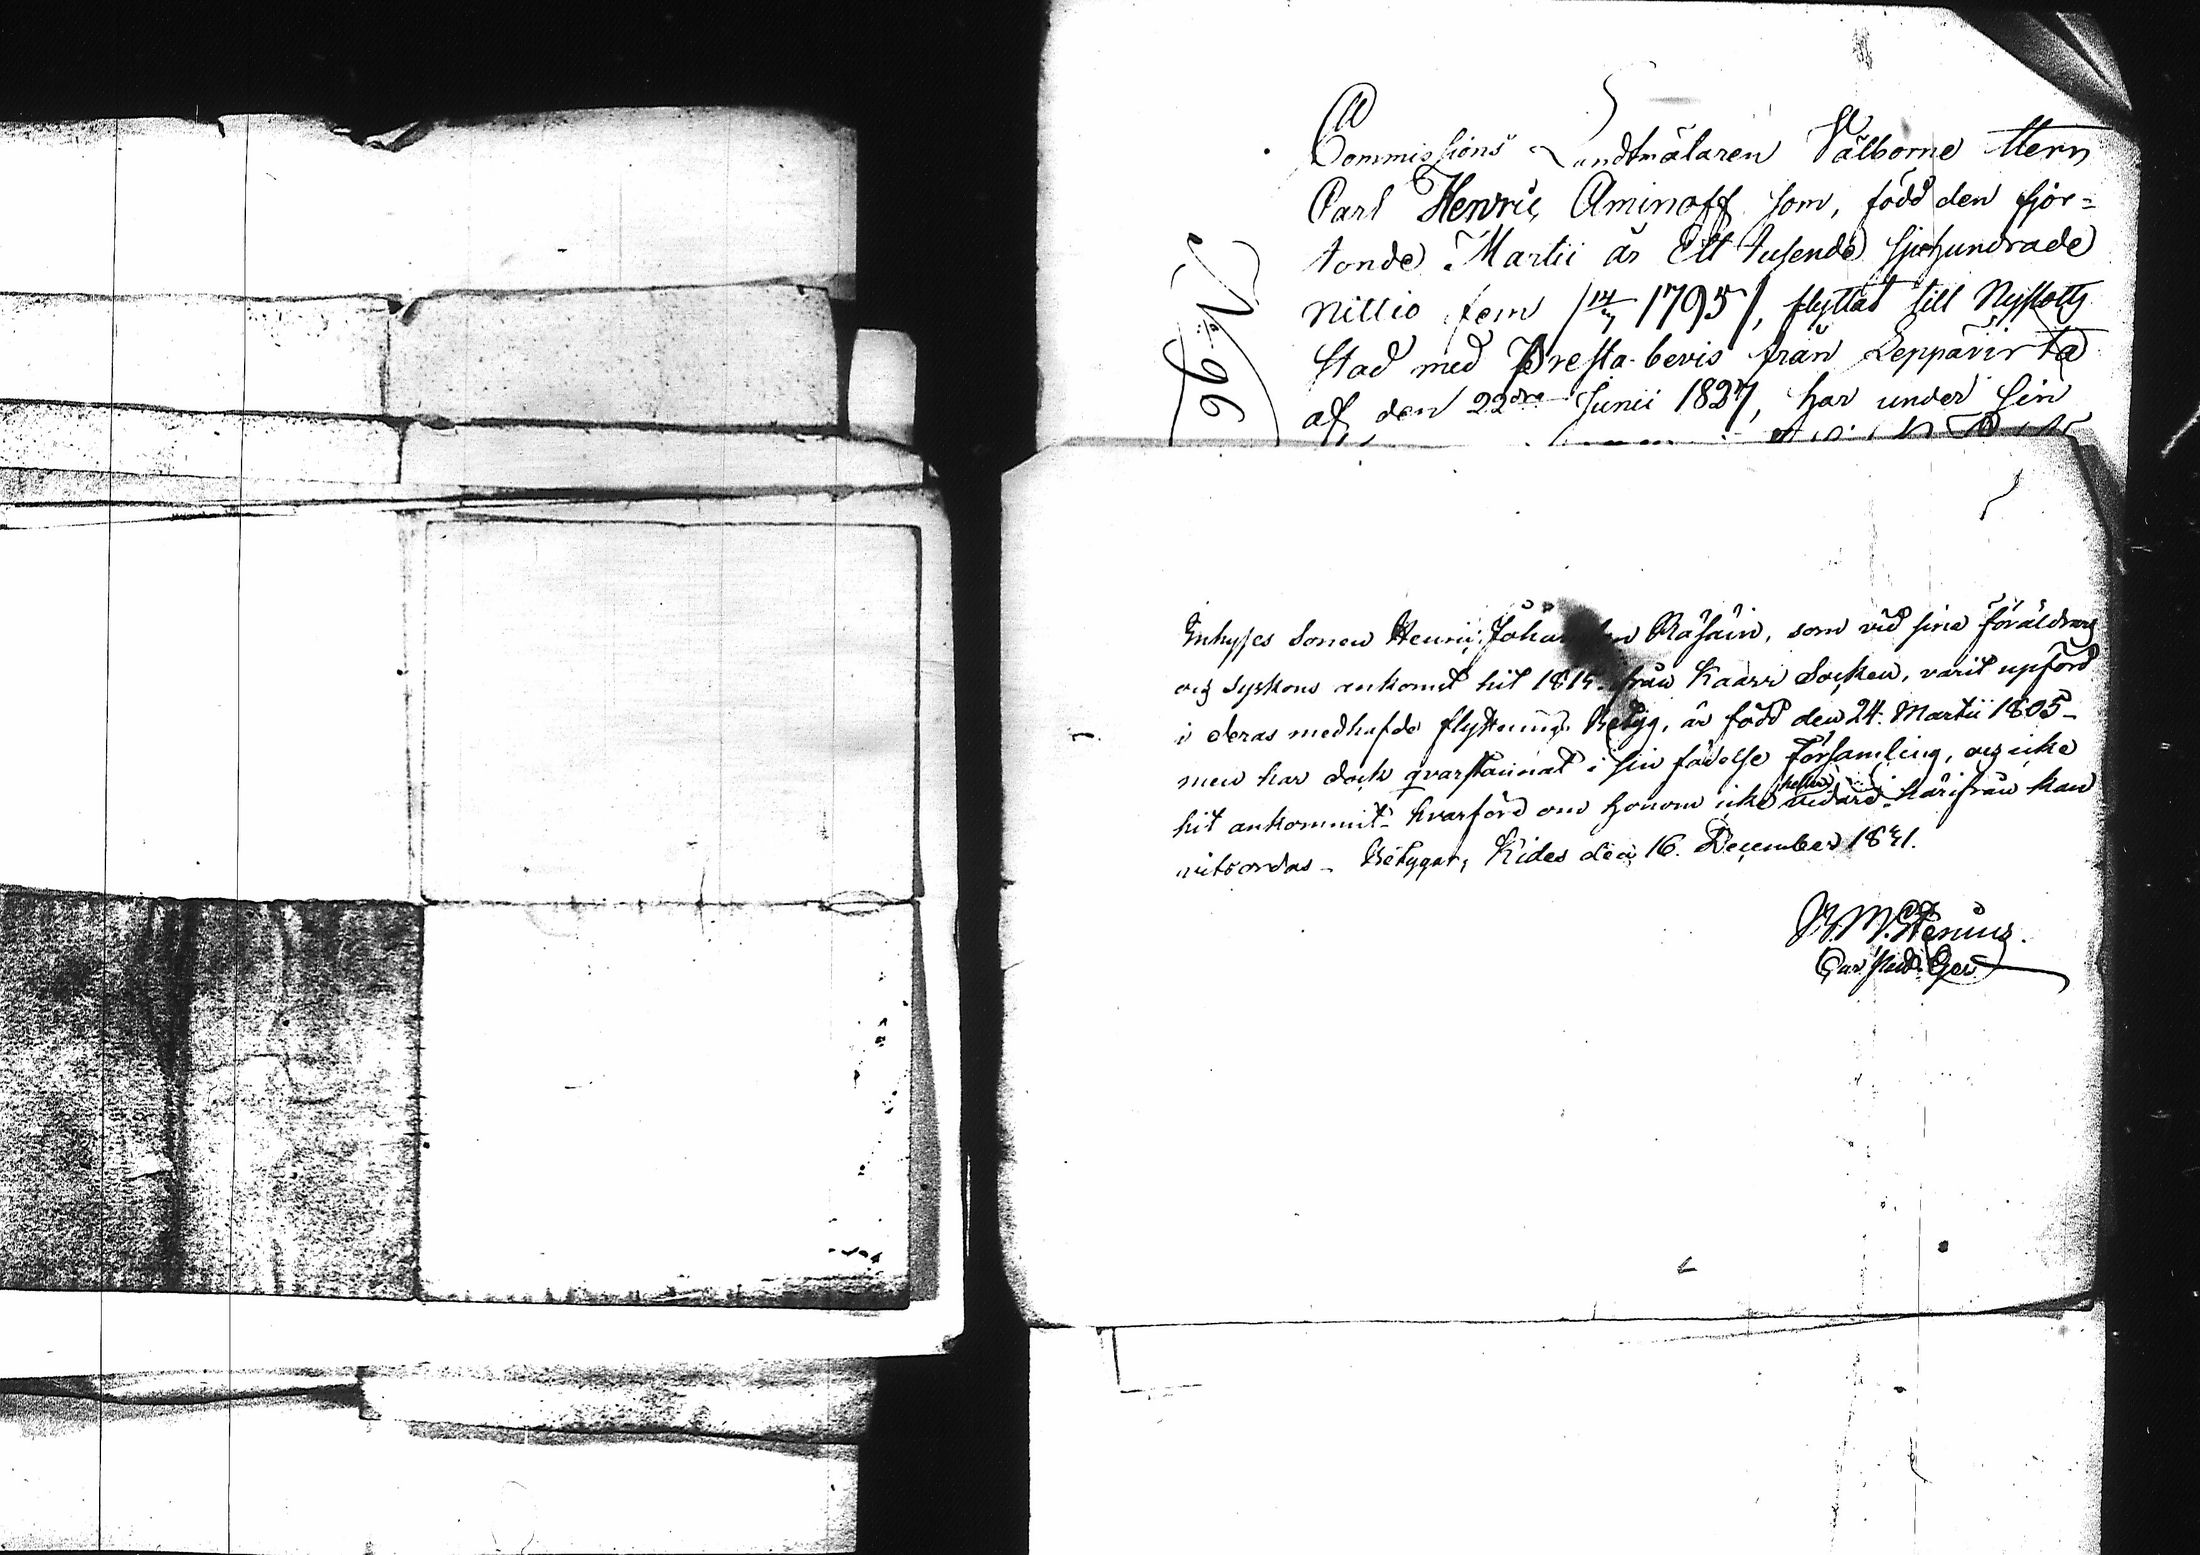 Commissions Landtmätaren Välborne Herr
Carl Henric Aminoff som, född den fjor=
tonde Martii år Ett tusende sjuhundrade
nittio fem /14/3 1795/, flyttat till Nyslotts
stad med Presta-bevis från Leppävirta
af den 22dra Junii 1827, har under sin
N:o 96
Inhyses Sonen Henric Johansson Räsäin, som vid sina föräldrars
och syskons ankomst hit 181 från Kaavi Socken, varit upförd
i deras medhafde flyttnings Betyg, är född den 24. Martii 1805 _
men har dock qvarstannat i sin födelse Församling, och icke
hit ankommit _ hvarföre om honom icke heller vidare härifrån kan
vitsordas _ Betygar, Kides den 16. December 1831.
Stenius.